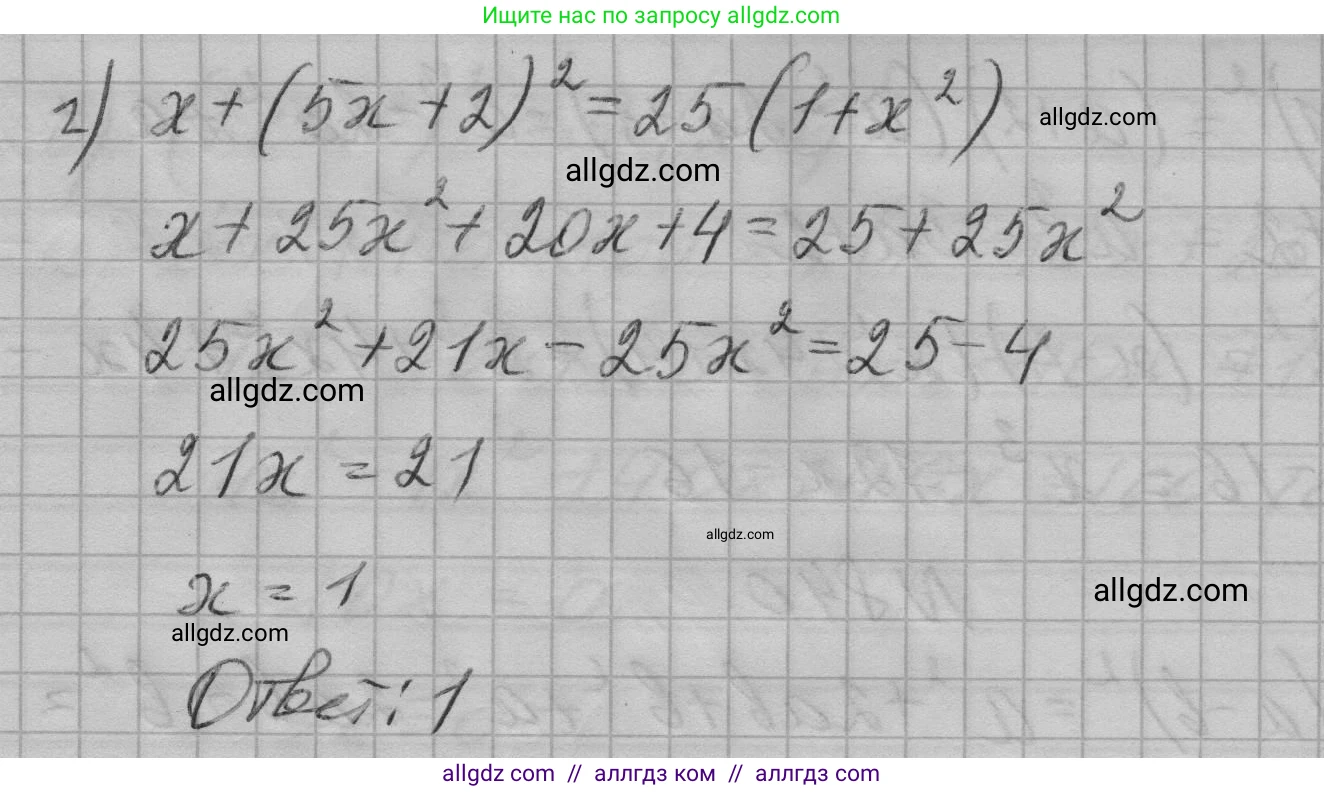 Ищите нас по запросу allgdz.com
г) x + (5x + 2)² = 25 (1 + x²)
allgdz.com
allgdz.com
x + 25x² + 20x + 4 = 25 + 25x²
25x² + 21x - 25x² = 25 - 4
allgdz.com
21x = 21
allgdz.com
x = 1
allgdz.com
allgdz.com
Ответ: 1
allgdz com // аллгдз ком // аллгдз com